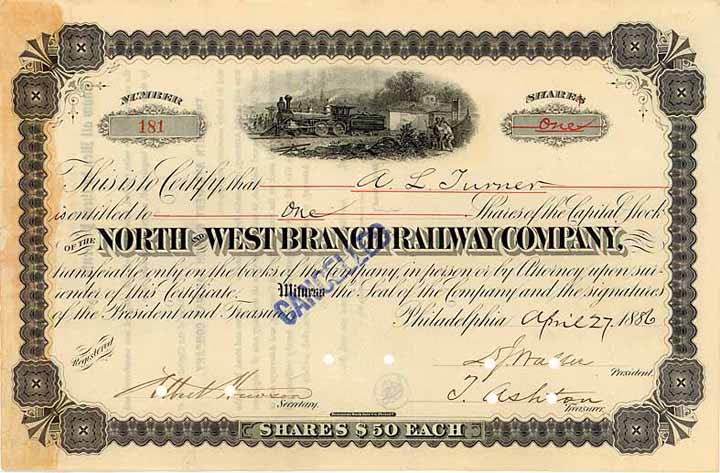 NUMBER
181
SHARES
One
This is to Certify, that A. L. Turner
is entitled to One Shares of the Capital Stock
OF THE NORTH AND WEST BRANCH RAILWAY COMPANY,
transferable only on the books of the Company, in person or by Attorney upon sur-
render of this Certificate. Witness the Seal of the Company and the signatures
of the President and Treasurer. Philadelphia April 27 1886
CANCELLED
Registered
President.
Secretary.
T. Ashton
Treasurer.
SHARES $50 EACH